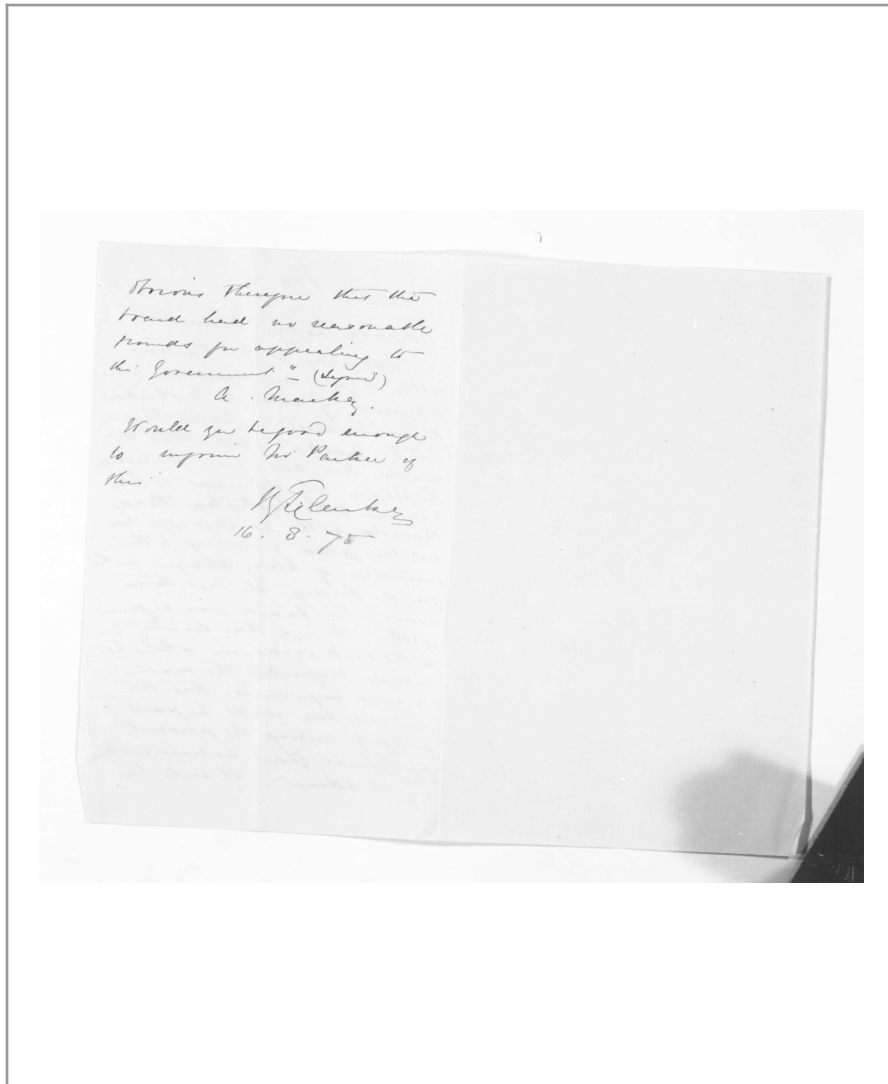 obvious therefore that the
board had no reasonable
grounds for appealing to
the Government" (signed)
A. Mackay.
Would you be good enough
to inform Mr Parker of
this
H T Clarke
16. 8. 75